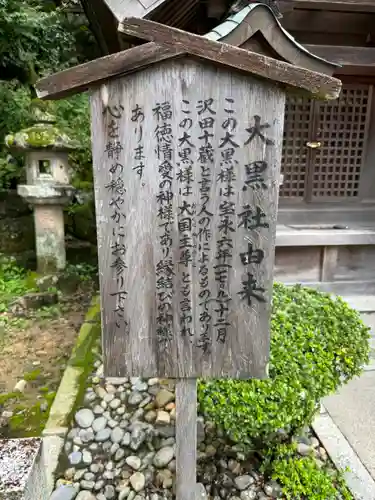 大黒社由来
この大黒様は宝永六年(一七〇九)十二月
沢田十蔵と言う人の作によるものであります。
この大黒様は大国主尊とも言われ
福徳情愛の神様であり縁結びの神で
あります。
心を静め穏やかにお参り下さい。